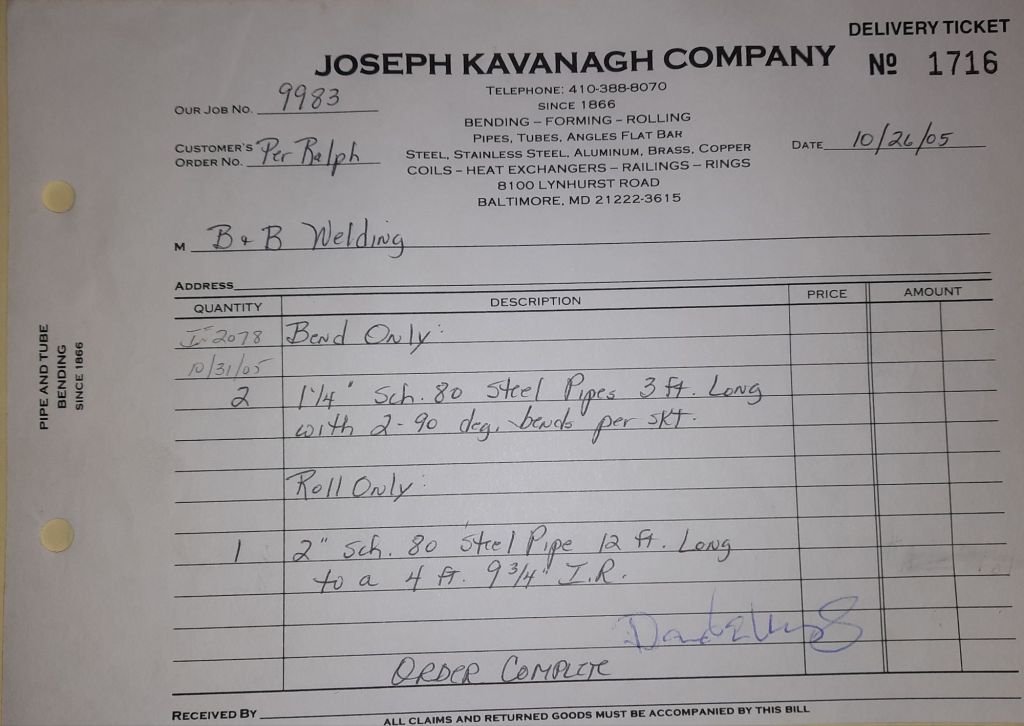 DELIVERY TICKET
JOSEPH KAVANAGH COMPANY
Nº 1716
TELEPHONE: 410-388-8070
SINCE 1866
BENDING – FORMING – ROLLING
PIPES, TUBES, ANGLES FLAT BAR
STEEL, STAINLESS STEEL, ALUMINUM, BRASS, COPPER
COILS – HEAT EXCHANGERS – RAILINGS – RINGS
8100 LYNHURST ROAD
BALTIMORE, MD 21222-3615
OUR JOB NO. 9983
CUSTOMER'S ORDER NO. Per Ralph
DATE 10/26/05
M B & B Welding
ADDRESS
QUANTITY DESCRIPTION PRICE AMOUNT
I-2078 Bend Only:
10/31/05
2 1 1/4" Sch. 80 Steel Pipes 3 ft. Long
with 2-90 deg. bends per skt.
Roll Only:
1 2" Sch. 80 Steel Pipe 12 ft. Long
to a 4 ft. 9 3/4" I.R.
ORDER COMPLETE
RECEIVED BY
ALL CLAIMS AND RETURNED GOODS MUST BE ACCOMPANIED BY THIS BILL
PIPE AND TUBE
BENDING
SINCE 1866